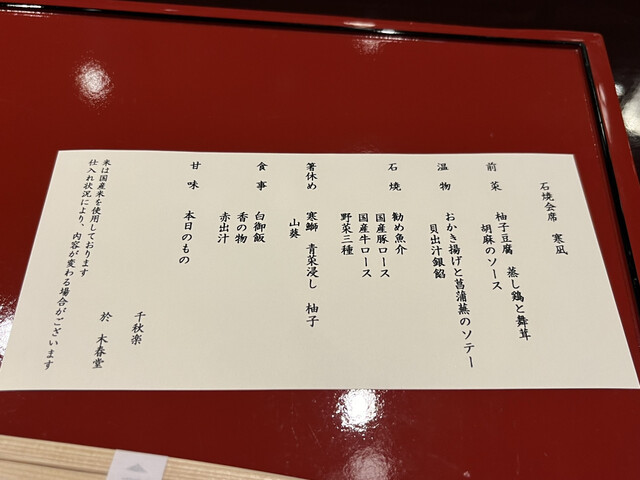 石焼会席　寒凪
前菜　柚子豆腐　蒸し鶏と舞茸
胡麻のソース
温物　おかき揚げと菖蒲蕪のソテー
貝出汁銀餡
石焼　勧め魚介
国産豚ロース
国産牛ロース
野菜三種
箸休め　寒鰤　青菜浸し　柚子
山葵
食事　白御飯
香の物
赤出汁
甘味　本日のもの
米は国産米を使用しております
仕入れ状況により、内容が変わる場合がございます
千秋楽
於　木春堂